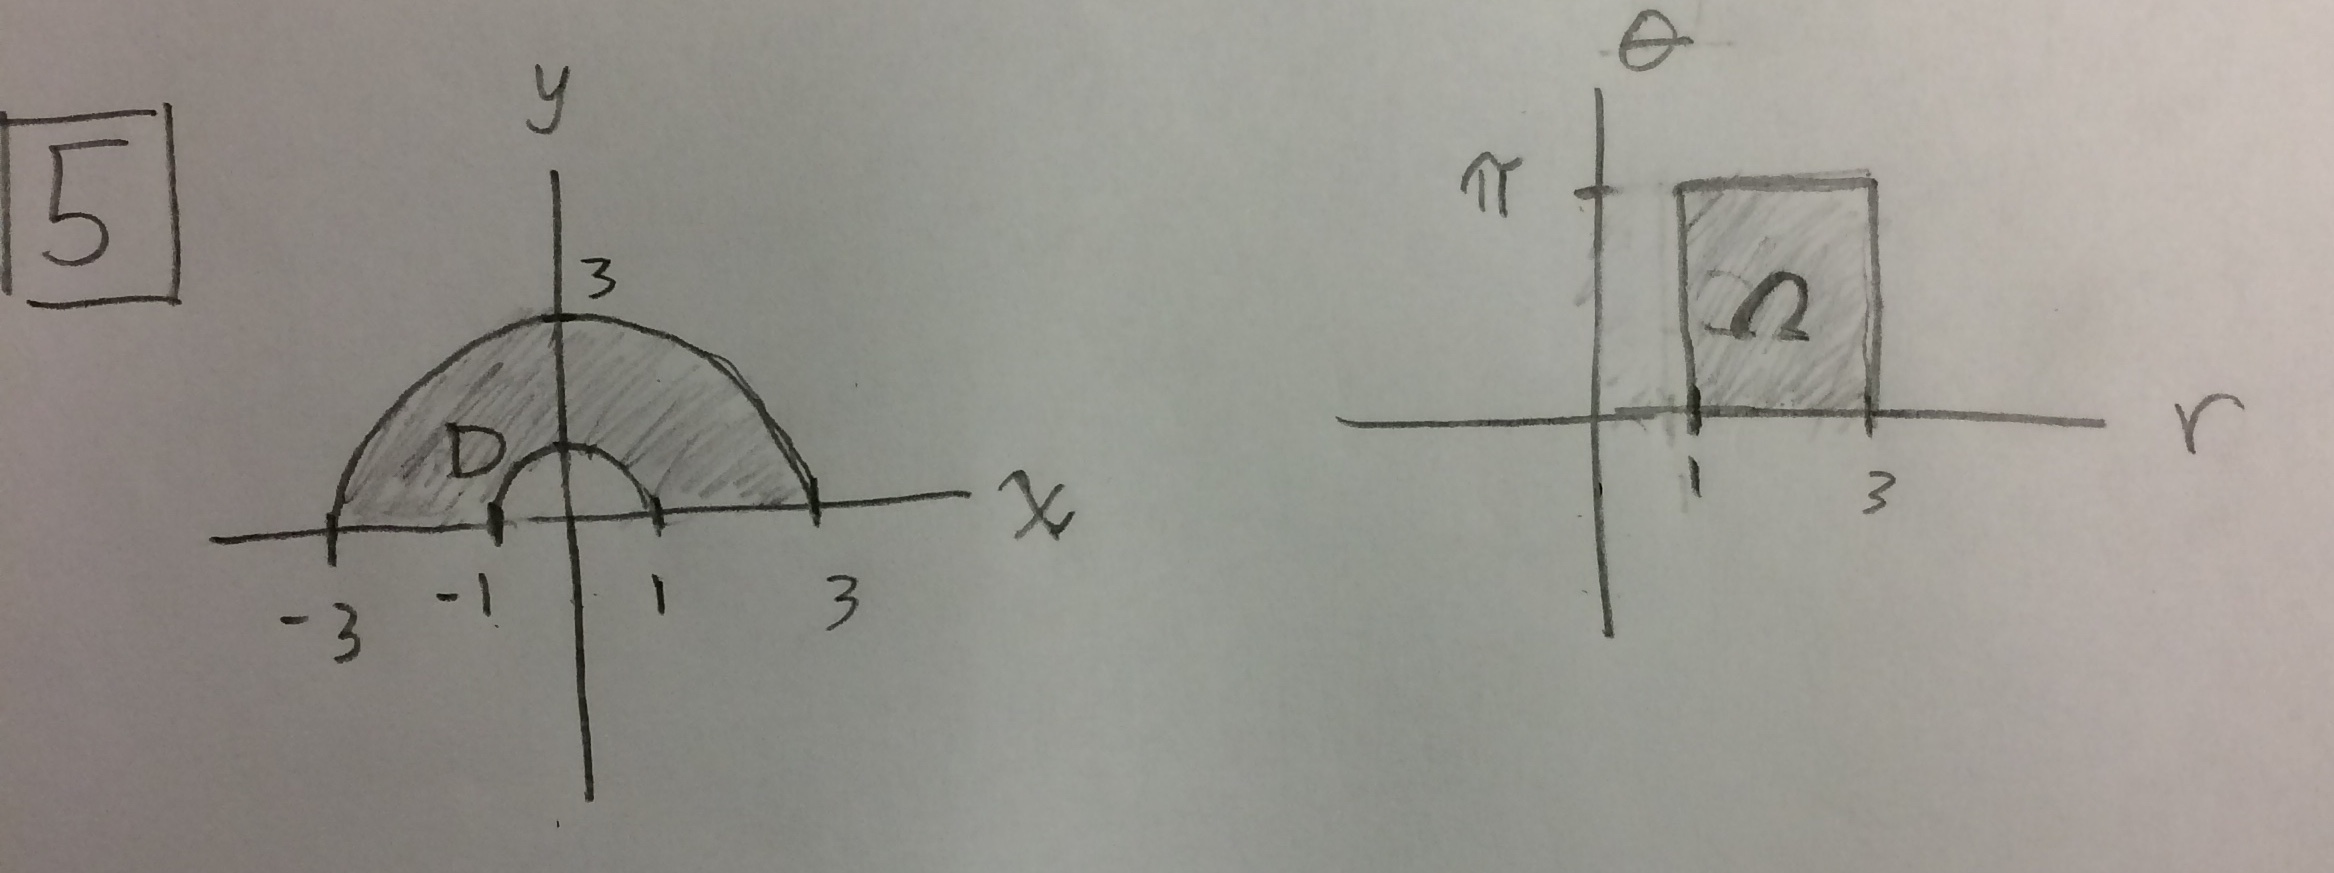 5
y
3
D
x
-3 -1 1 3
θ
π
Ω
r
1 3